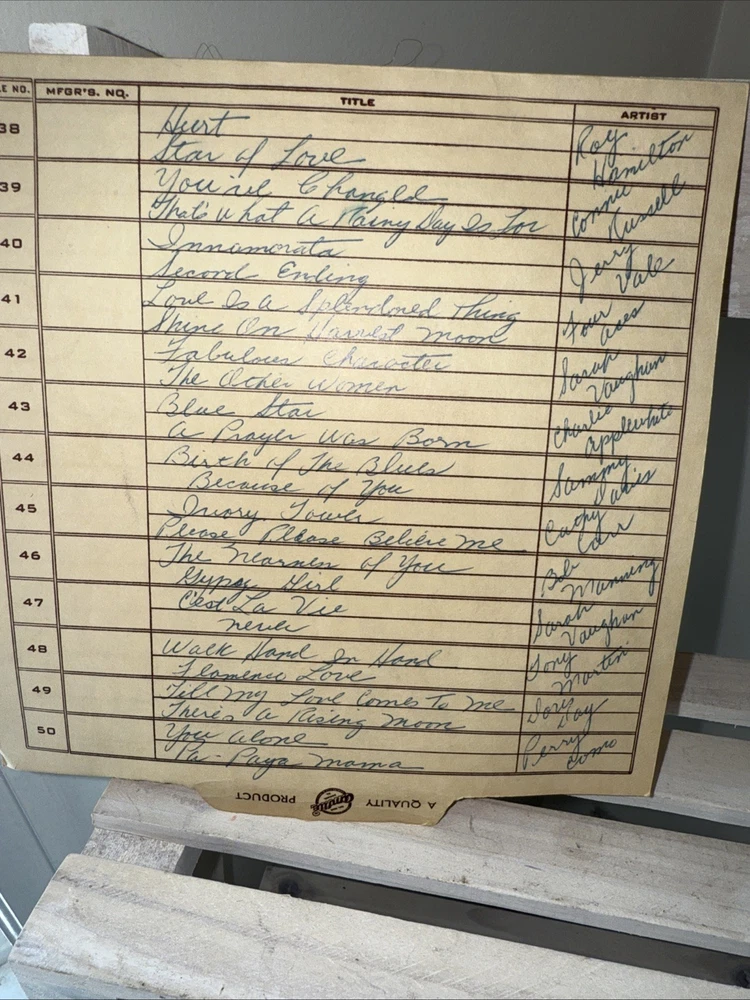 LE NO. MFGR'S. NO. TITLE ARTIST
38 Hurt Roy
Star of Love Hamilton
39 You've Changed Connie
That's what A Rainy Day Is For Russell
40 Innamorata Jerry
Second Ending Vale
41 Love Is a Splendored Thing Four
Shine On Harvest Moon Aces
42 Fabulous Character Sarah
The Other Women Vaughan
43 Blue Star Charlie
A Prayer Was Born Applewhite
44 Birth of The Blues Sammy
Because of You Davis
45 Ivory Tower Cathy
Please Please Believe Me Carr
46 The Nearness of You Bob
Gypsy Girl Manning
47 C'est La Vie Sarah
Never Vaughan
48 Walk Hand In Hand Tony
Flamenco Love Martin
49 Till My Love Comes To Me Doris
There's A Rising Moon Day
50 You Alone Perry
Pa-Paya Mama Como
A QUALITY PRODUCT